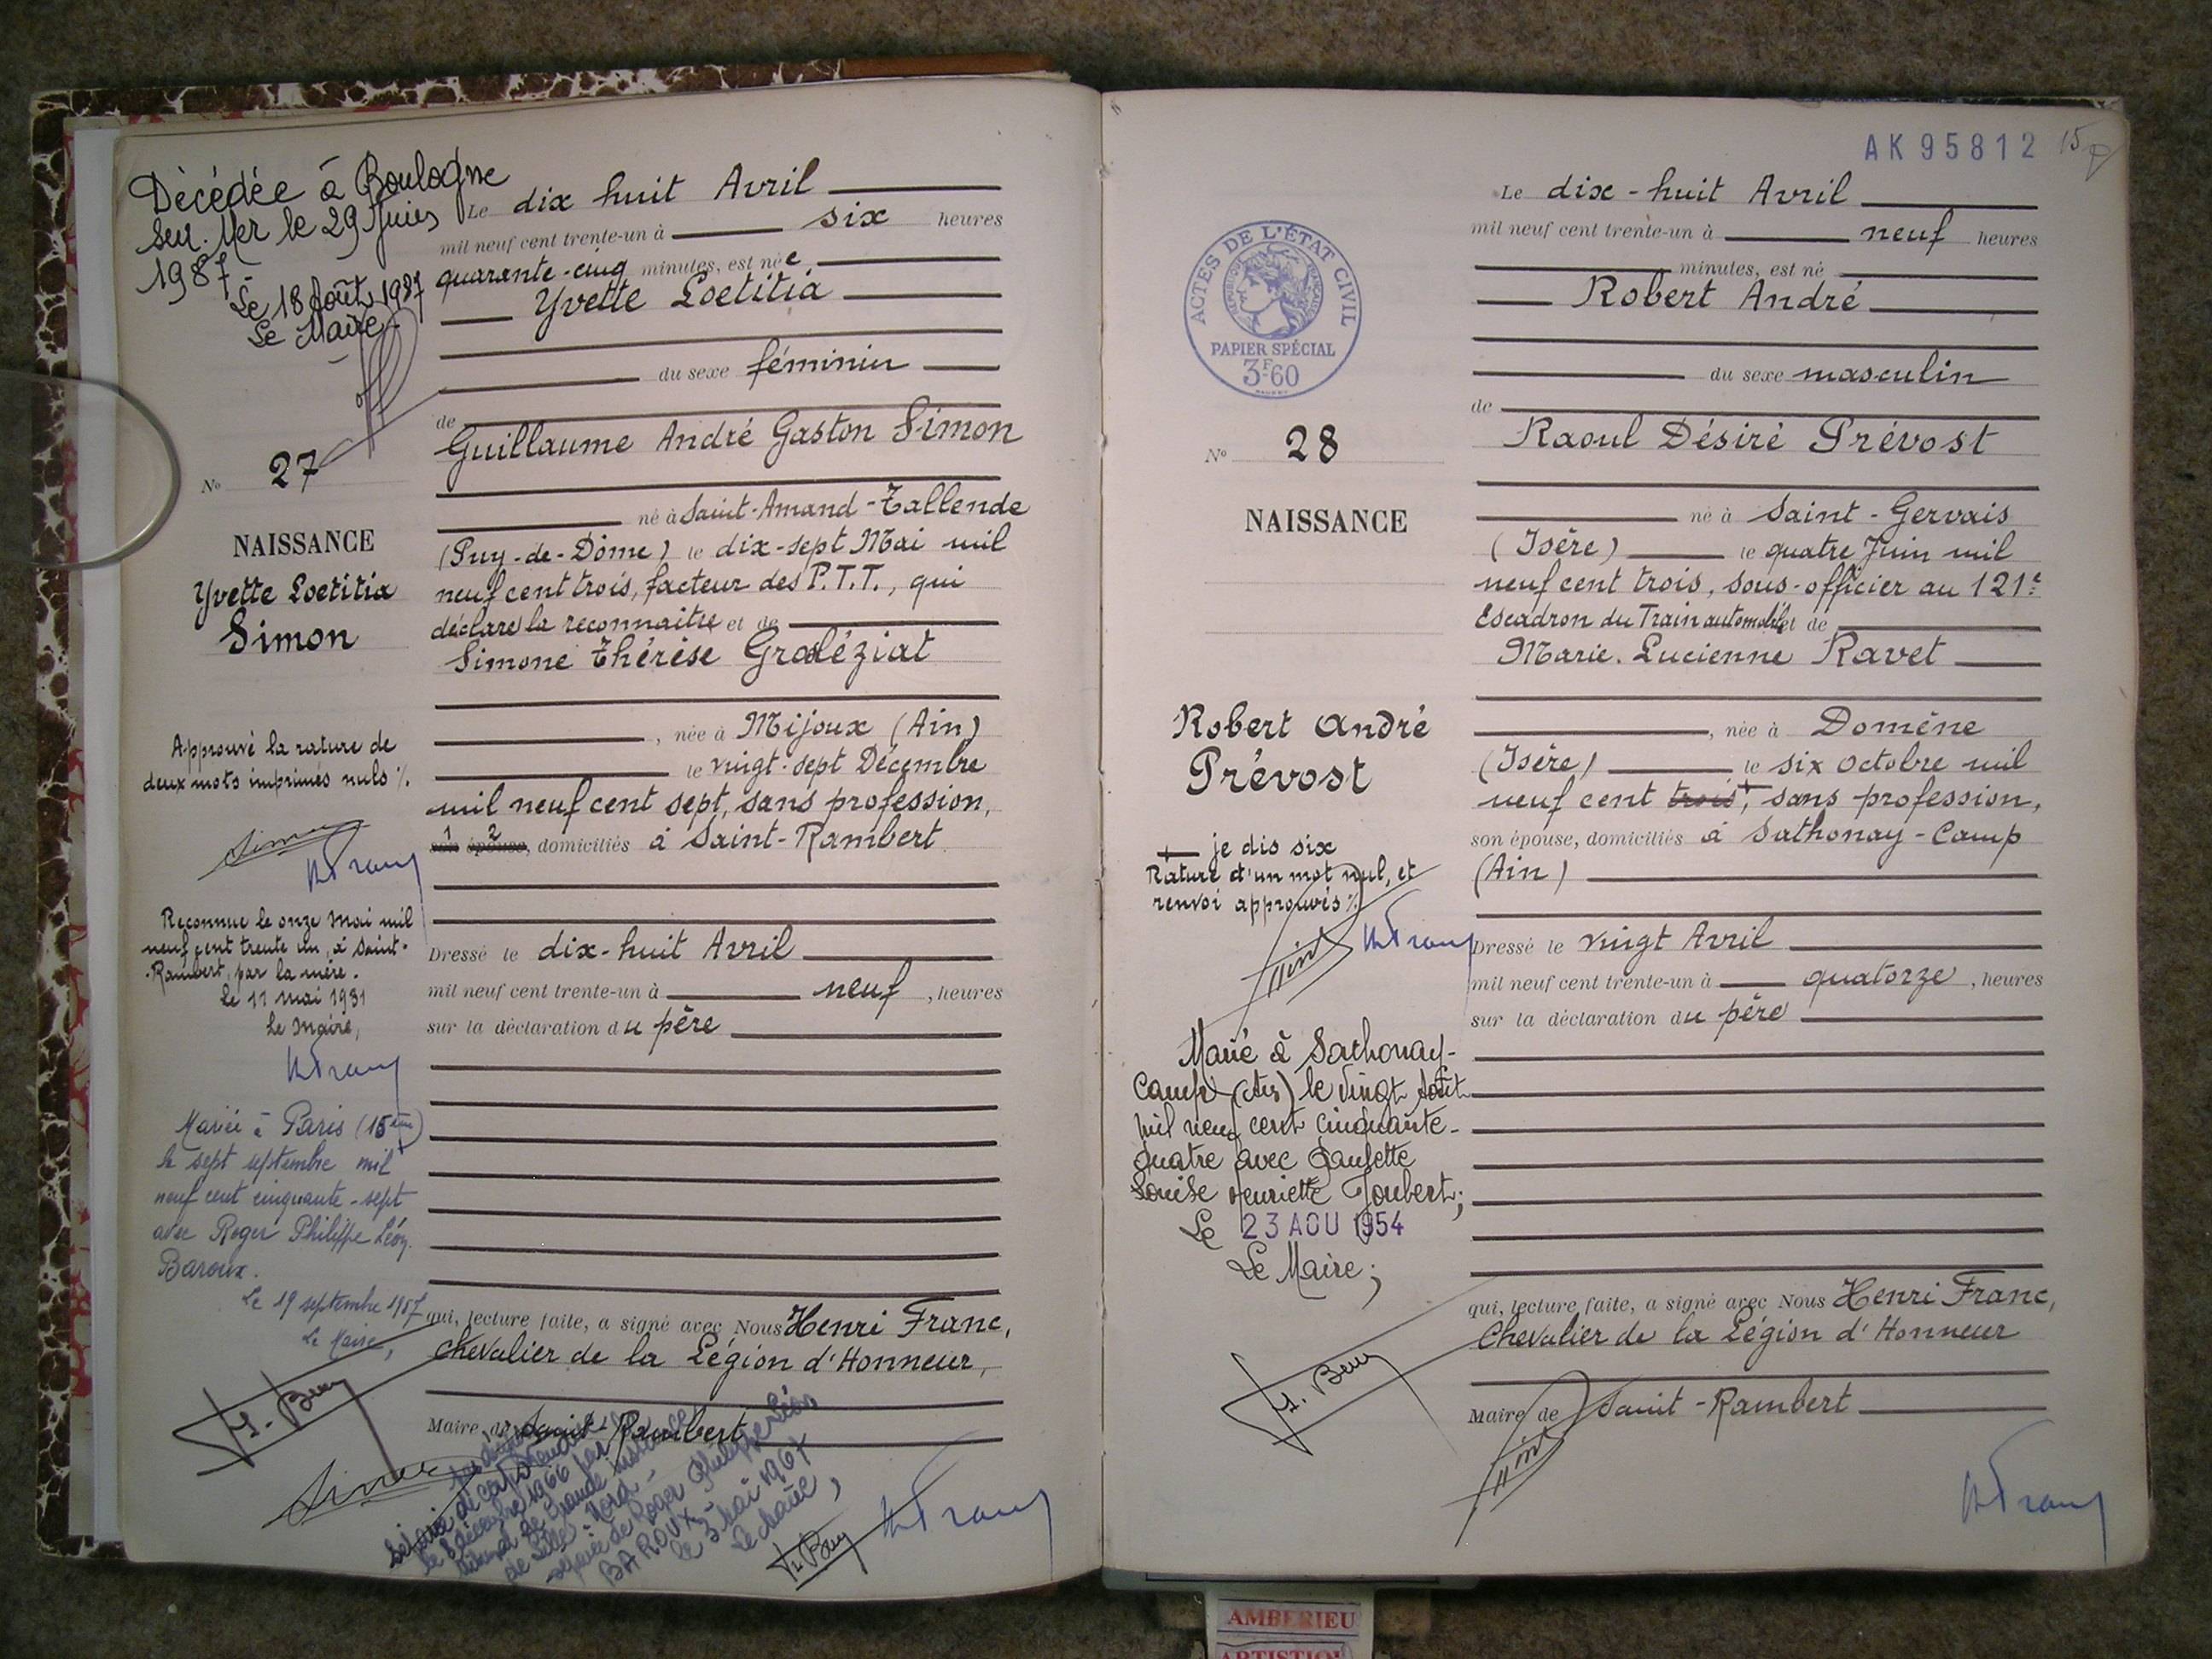 Décédée à Boulogne
sur-Mer le 29 Juin
1987.-
Le 18 Août 1987
Le Maire.
No 27
NAISSANCE
Yvette Loetitia
Simon
Approuvé la rature de
deux mots imprimés nuls %.
Simon
Reconnue le onze Mai mil
neuf cent trente un, à Saint-
-Rambert, par la mère.
Le 11 mai 1931
Le Maire,
Mariée à Paris (15ème)
le sept septembre mil
neuf cent cinquante-sept
avec Roger Philippe Léon
Baroux.
Le 19 septembre 1957
Le Maire,
Le dix huit Avril
mil neuf cent trente-un à six heures
quarante-cinq minutes, est née
Yvette Loetitia
du sexe féminin
de
Guillaume André Gaston Simon
né à Saint-Amand-Tallende
(Puy-de-Dôme) le dix-sept Mai mil
neuf cent trois, facteur des P.T.T., qui
déclare la reconnaitre et de
Simone Thérèse Grosléziat
, née à Mijoux (Ain)
le vingt-sept Décembre
mil neuf cent sept, sans profession,
son épouse, domiciliés à Saint-Rambert
Dressé le dix-huit Avril
mil neuf cent trente-un à neuf, heures
sur la déclaration du père
qui, lecture faite, a signé avec Nous Henri Franc,
Chevalier de la Légion d'Honneur,
Maire de Saint-Rambert
Simon
séparée de corps
le 8 décembre 1966 par le
tribunal de Grande Instance
de Lille-Nord-
séparée de Roger Philippe Léon
BAROUX.-
Le 3 Mai 1967
Le Maire,
AK95812
15
ACTES DE L'ÉTAT CIVIL
RÉPUBLIQUE FRANÇAISE
PAPIER SPÉCIAL
3F60
No 28
NAISSANCE
Robert André
Prévost
+ je dis six
Rature d'un mot nul, et
renvoi approuvés %.
Marié à Sathonay-
Camp (Ain) le vingt Août
mil neuf cent cinquante-
quatre avec Paulette
Louise Henriette Joubert;
Le 23 AOU 1954
Le Maire;
Le dix-huit Avril
mil neuf cent trente-un à neuf heures
minutes, est né
Robert André
du sexe masculin
de
Raoul Désiré Prévost
né à Saint-Gervais
(Isère) le quatre Juin mil
neuf cent trois, sous-officier au 121e
Escadron du Train automobile et de
Marie-Lucienne Ravet
, née à Domène
(Isère) le six octobre mil
neuf cent trois +, sans profession,
son épouse, domiciliés à Sathonay-Camp
(Ain)
Dressé le vingt Avril
mil neuf cent trente-un à quatorze, heures
sur la déclaration du père
qui, lecture faite, a signé avec Nous Henri Franc,
Chevalier de la Légion d'Honneur
Maire de Saint-Rambert
AMBERIEU